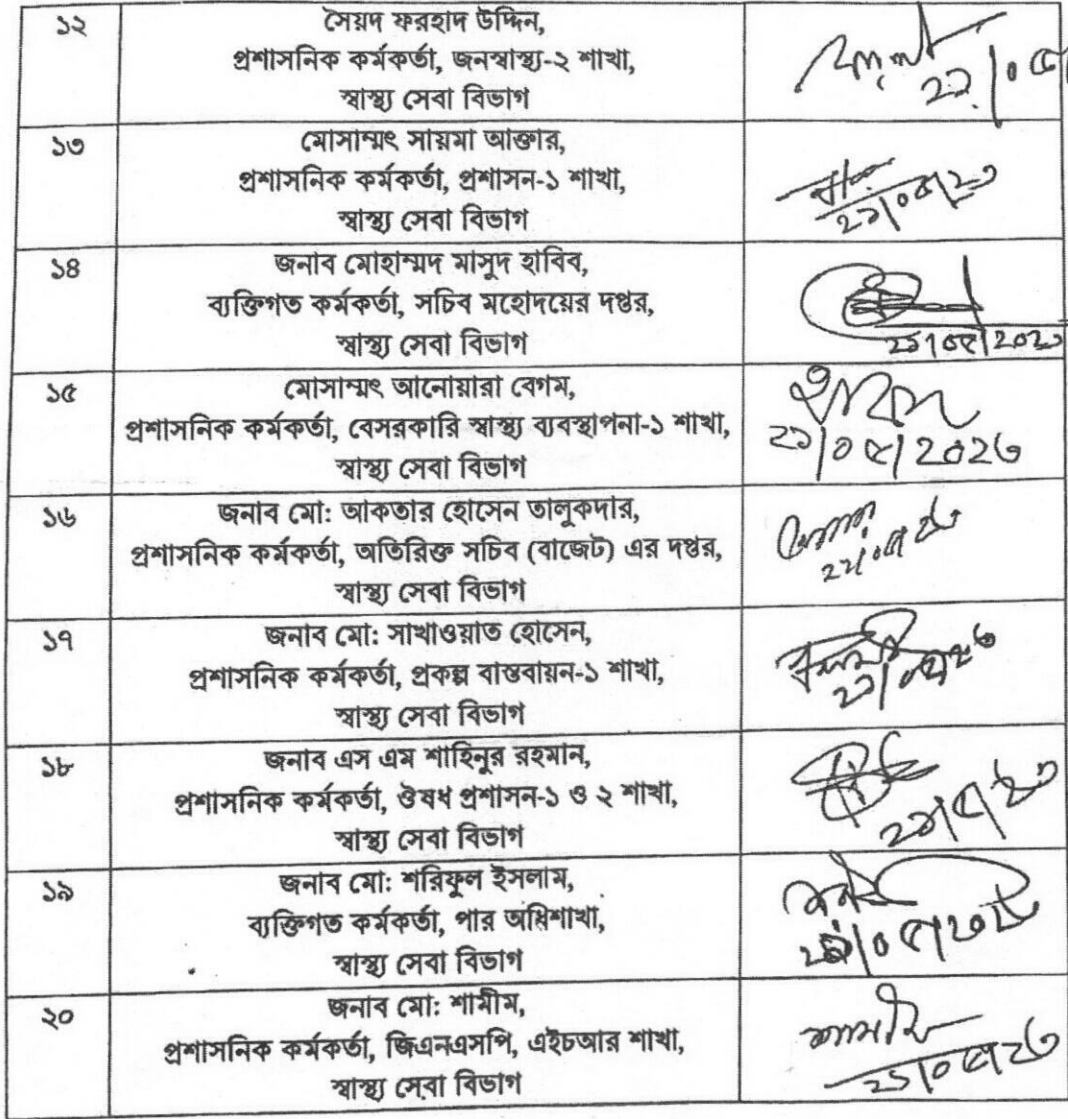 ১২
সৈয়দ ফরহাদ উদ্দিন,
প্রশাসনিক কর্মকর্তা, জনস্বাস্থ্য-২ শাখা,
স্বাস্থ্য সেবা বিভাগ
১৩
মোসাম্মৎ সায়মা আক্তার,
প্রশাসনিক কর্মকর্তা, প্রশাসন-১ শাখা,
স্বাস্থ্য সেবা বিভাগ
১৪
জনাব মোহাম্মদ মাসুদ হাবিব,
ব্যক্তিগত কর্মকর্তা, সচিব মহোদয়ের দপ্তর,
স্বাস্থ্য সেবা বিভাগ
১৫
মোসাম্মৎ আনোয়ারা বেগম,
প্রশাসনিক কর্মকর্তা, বেসরকারি স্বাস্থ্য ব্যবস্থাপনা-১ শাখা,
স্বাস্থ্য সেবা বিভাগ
২১/০৫/২০২৩
১৬
জনাব মো: আকতার হোসেন তালুকদার,
প্রশাসনিক কর্মকর্তা, অতিরিক্ত সচিব (বাজেট) এর দপ্তর,
স্বাস্থ্য সেবা বিভাগ
১৭
জনাব মো: সাখাওয়াত হোসেন,
প্রশাসনিক কর্মকর্তা, প্রকল্প বাস্তবায়ন-১ শাখা,
স্বাস্থ্য সেবা বিভাগ
১৮
জনাব এস এম শাহিনুর রহমান,
প্রশাসনিক কর্মকর্তা, ঔষধ প্রশাসন-১ ও ২ শাখা,
স্বাস্থ্য সেবা বিভাগ
১৯
জনাব মো: শরিফুল ইসলাম,
ব্যক্তিগত কর্মকর্তা, পার অধিশাখা,
স্বাস্থ্য সেবা বিভাগ
২০
জনাব মো: শামীম,
প্রশাসনিক কর্মকর্তা, জিএনএসপি, এইচআর শাখা,
স্বাস্থ্য সেবা বিভাগ